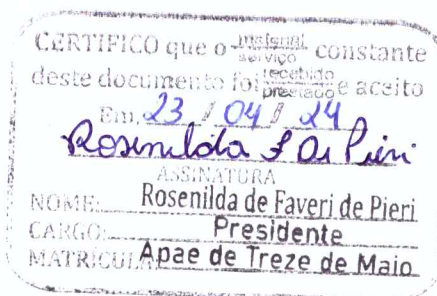 CERTIFICO que o material/serviço constante
deste documento foi recebido/prestado e aceito
Em, 23 / 04 / 24
Rosenilda F Di Pieri
ASSINATURA
NOME: Rosenilda de Faveri de Pieri
CARGO: Presidente
MATRÍCULA Apae de Treze de Maio